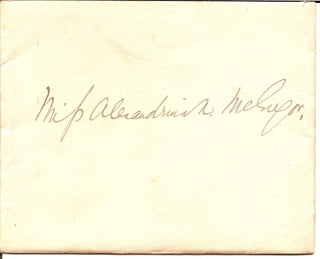 Miss Alexandrina McGregor.